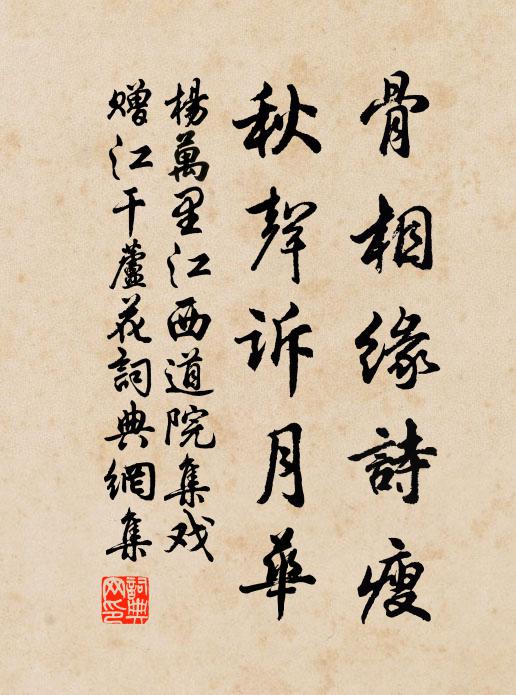 骨相緣詩瘦
秋聲訴月華
楊萬里江西道院集戏
贈江干蘆花詞典網集
詞典網印